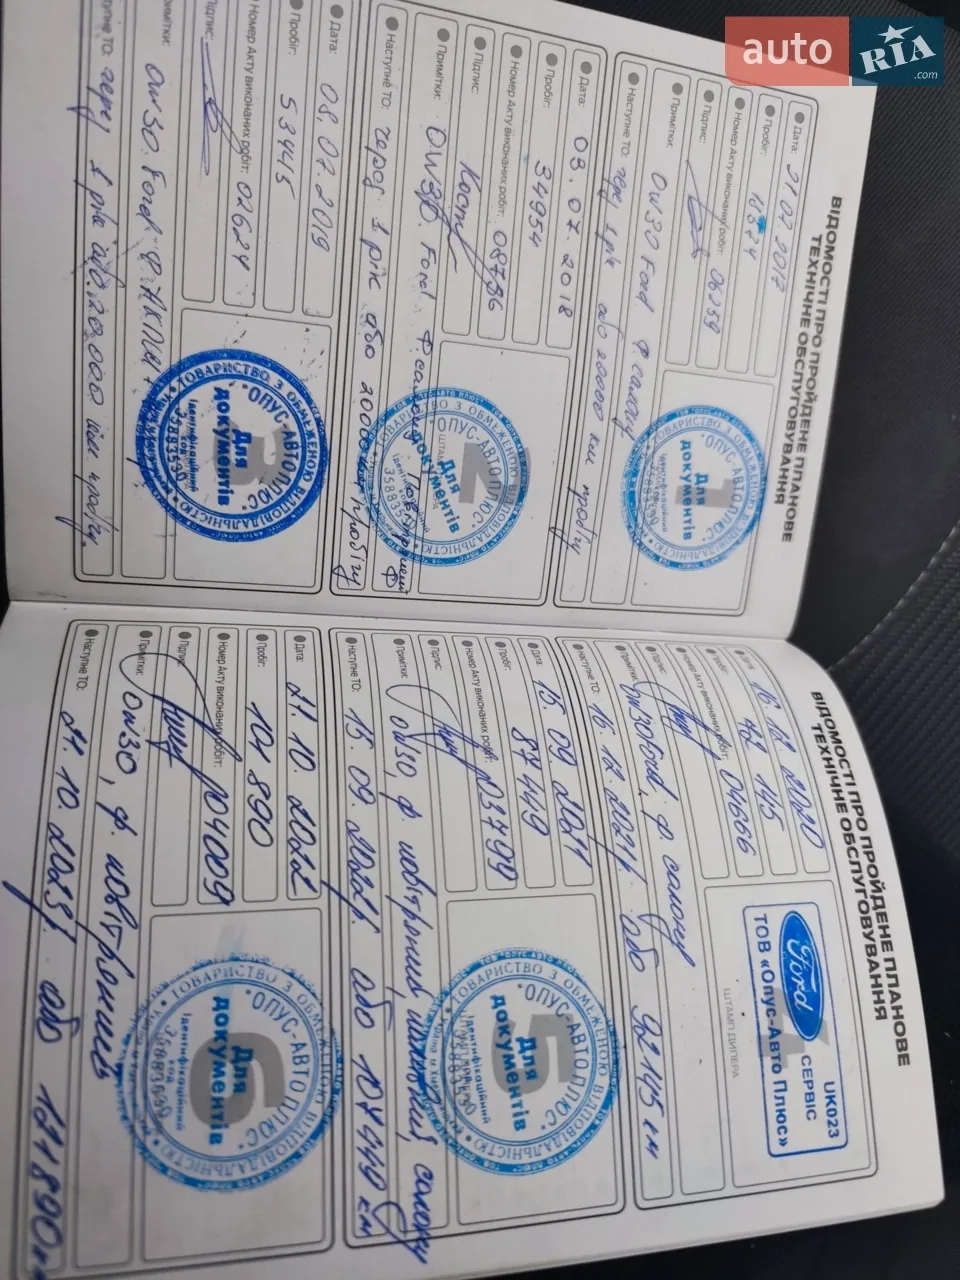 auto RIA .com
ВІДОМОСТІ ПРО ПРОЙДЕНЕ ПЛАНОВЕ
ТЕХНІЧНЕ ОБСЛУГОВУВАННЯ
Дата: 21.07.2017
Пробіг:
Номер Акту виконаних робіт: 06359
Підпис:
Примітки: OW30 Ford Ф. салону
Наступне ТО: через 1 рік або 20000 км пробігу
1
ТОВАРИСТВО З ОБМЕЖЕНОЮ ВІДПОВІДАЛЬНІСТЮ
"ОПУС-АВТО ПЛЮС"
Для документів
Ідентифікаційний код
35883530
Дата: 03.07.2018
Пробіг: 34954
Номер Акту виконаних робіт: 08796
Підпис:
Примітки: OW30 Ford Ф. салону
Наступне ТО: через 1 рік або 20000 км пробігу
2
ТОВАРИСТВО З ОБМЕЖЕНОЮ ВІДПОВІДАЛЬНІСТЮ
"ОПУС-АВТО ПЛЮС"
Для документів
Ідентифікаційний код
35883530
Дата: 08.07.2019
Пробіг: 53445
Номер Акту виконаних робіт: 02624
Підпис:
Примітки: OW30 Ford Ф.
Наступне ТО: через 1 рік або 20.000 км пробігу.
3
ТОВАРИСТВО З ОБМЕЖЕНОЮ ВІДПОВІДАЛЬНІСТЮ
"ОПУС-АВТО ПЛЮС"
Для документів
Ідентифікаційний код
35883530
ВІДОМОСТІ ПРО ПРОЙДЕНЕ ПЛАНОВЕ
ТЕХНІЧНЕ ОБСЛУГОВУВАННЯ
Дата: 16.12.2020
Пробіг: 72 145
Номер Акту виконаних робіт: 04566
Підпис:
Примітки: OW30 Ford, ф. салону
Наступне ТО: 16.12.2021р. або 92145 км
4
ШТАМП ДИЛЕРА
UK023
Ford СЕРВІС
ТОВ «Опус-Авто Плюс»
Дата: 15.09.2021
Пробіг: 87449
Номер Акту виконаних робіт: 03799
Підпис:
Примітки: OW30, ф. повітряний, салону
Наступне ТО: 15.09.2022р. або 107449 км
5
ТОВАРИСТВО З ОБМЕЖЕНОЮ ВІДПОВІДАЛЬНІСТЮ
"ОПУС-АВТО ПЛЮС"
Для документів
Ідентифікаційний код
35883530
Дата: 21.10.2022
Пробіг: 101 890
Номер Акту виконаних робіт: 04009
Підпис:
Примітки: OW30, ф. повітряний
Наступне ТО: 21.10.2023р. або 121890
6
ТОВАРИСТВО З ОБМЕЖЕНОЮ ВІДПОВІДАЛЬНІСТЮ
"ОПУС-АВТО ПЛЮС"
Для документів
Ідентифікаційний код
35883530